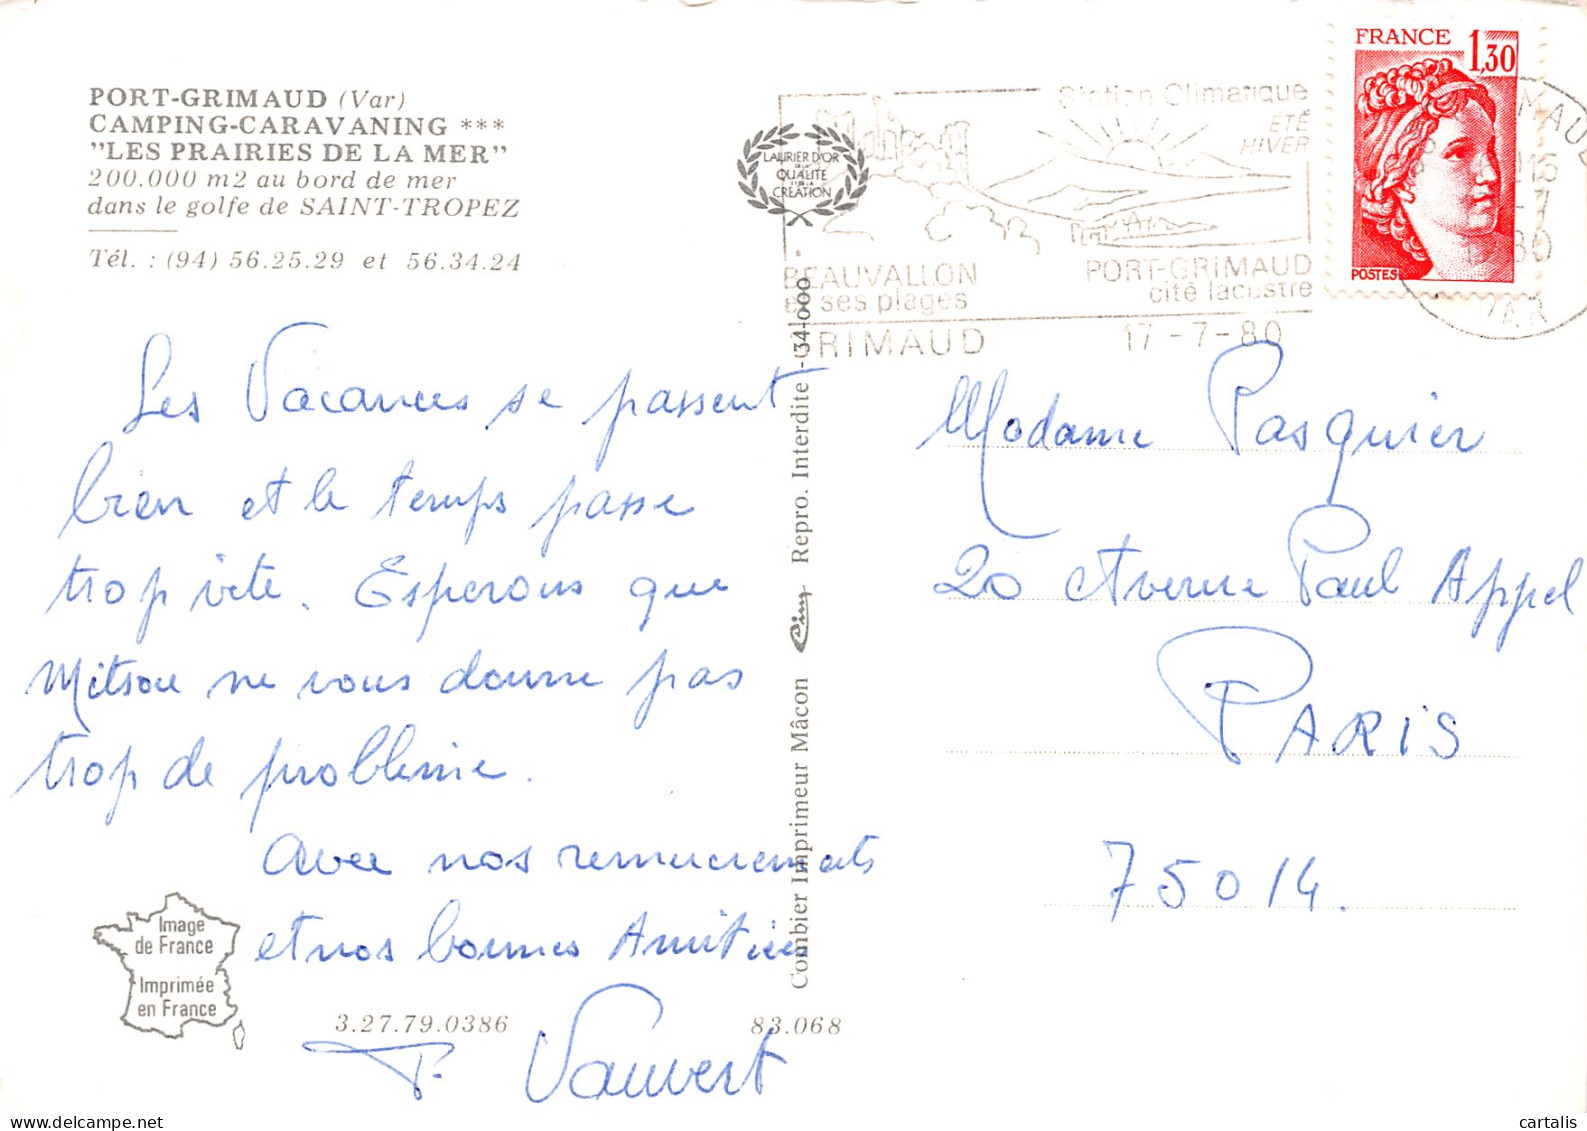 PORT-GRIMAUD (Var)
CAMPING-CARAVANING ***
"LES PRAIRIES DE LA MER"
200.000 m2 au bord de mer
dans le golfe de SAINT-TROPEZ
Tél. : (94) 56.25.29 et 56.34.24
LAURIER D'OR
DE LA
QUALITÉ
ET DE LA
CRÉATION
Station Climatique
ÉTÉ
HIVER
BEAUVALLON
et ses plages
PORT-GRIMAUD
cité lacustre
GRIMAUD
17-7-80
FRANCE
1,30
POSTES
VAR
Les Vacances se passent
bien et le temps passe
trop vite. Esperons que
Mitsou ne vous donne pas
trop de problème.
Avec nos remerciements
et nos bonnes Amitiés
P. Vauvert
Madame Pasquier
20 Avenue Paul Appel
PARIS
75014.
Combier Imprimeur Mâcon
Cim
Repro. Interdite - 34-000
Image
de France
Imprimée
en France
3.27.79.0386
83.068
cartalis sur www.delcampe.net